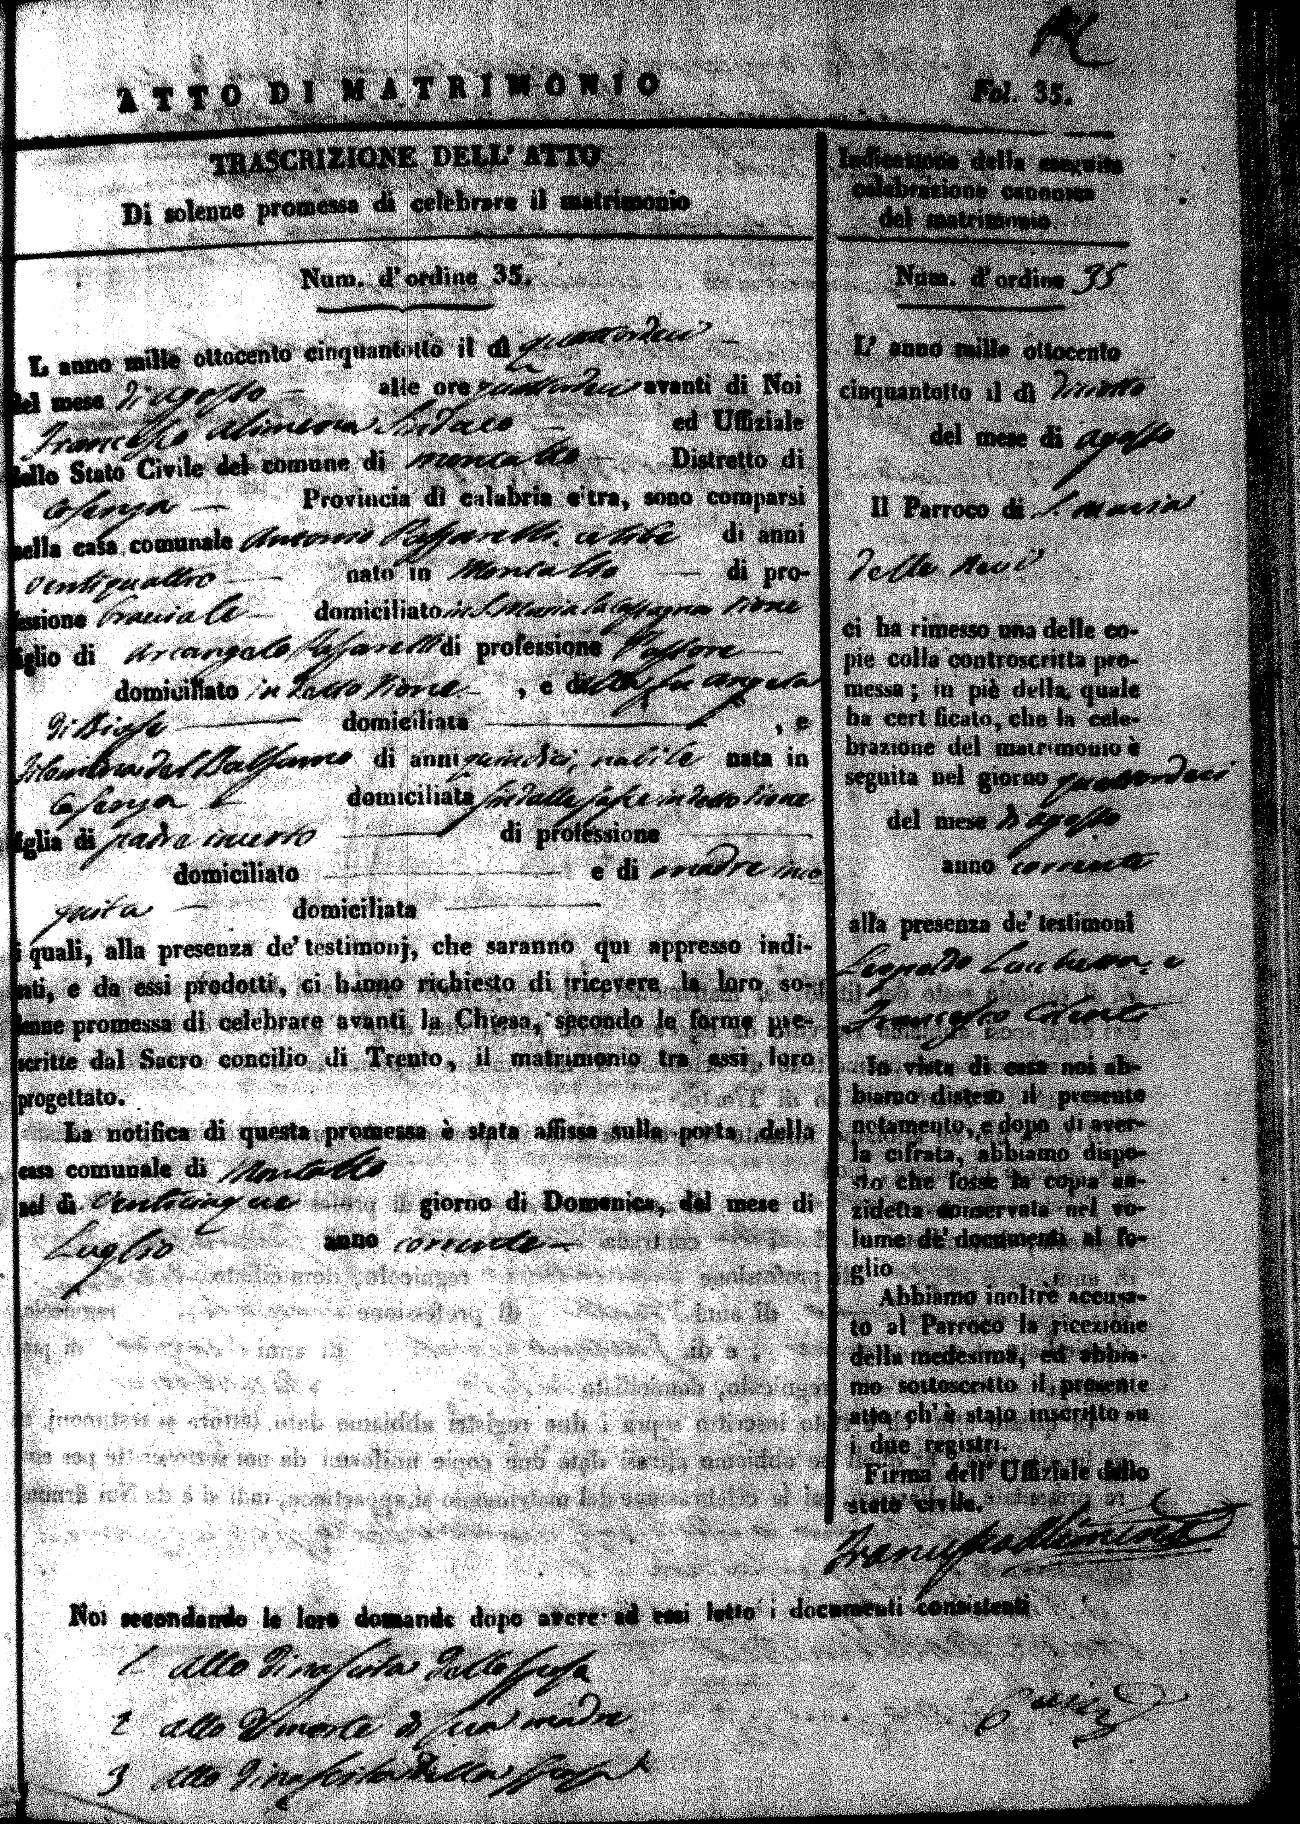 ATTO DI MATRIMONIO
Fol. 35.
TRASCRIZIONE DELL' ATTO
Di solenne promessa di celebrare il matrimonio
Num. d'ordine 35.
L' anno mille ottocento cinquantotto il dì quattordici
del mese di agosto alle ore quattordici avanti di Noi
Francesco Alimena Sindaco ed Uffiziale
dello Stato Civile del comune di Montalto Distretto di
Cosenza Provincia di calabria citra, sono comparsi
nella casa comunale Antonio Passarelli celibe di anni
ventiquattro nato in Montalto di pro-
fessione bracciale domiciliato in S. Maria la Castagna Rione
figlio di Arcangelo Passarelli di professione Pastore
domiciliato in detto Rione , e di fu Angela
di Biase domiciliata , e
Filomena del Balsamo di anni quindici, nubile nata in
Cosenza domiciliata in detto Rione
figlia di padre incerto di professione
domiciliato e di madre inco
gnita domiciliata
i quali, alla presenza de' testimonj, che saranno qui appresso indi-
cati, e da essi prodotti, ci hanno richiesto di ricevere la loro so-
lenne promessa di celebrare avanti la Chiesa, secondo le forme pre-
scritte dal Sacro concilio di Trento, il matrimonio tra essi loro
progettato.
La notifica di questa promessa è stata affissa sulla porta della
casa comunale di Montalto
nel dì venticinque giorno di Domenica, del mese di
Luglio anno corrente
Indicazione della eseguita
celebrazione canonica
del matrimonio.
Num. d'ordine 35
L' anno mille ottocento
cinquantotto il dì diciotto
del mese di agosto
Il Parroco di S. Maria
della Neve
ci ha rimesso una delle co-
pie colla controscritta pro-
messa; in piè della quale
ha certificato, che la cele-
brazione del matrimonio è
seguita nel giorno quattordici
del mese di agosto
anno corrente
alla presenza de' testimoni
Leopoldo e
Francesco
In vista di essa noi ab-
biamo disteso il presente
notamento, e dopo di aver-
la cifrata, abbiamo dispo-
sto che fosse la copia an-
zidetta conservata nel vo-
lume de' documenti al fo-
glio
Abbiamo inoltre accusa-
to al Parroco la ricezione
della medesima, ed abbia-
mo sottoscritto il presente
atto ch' è stato inscritto su
i due registri.
Firma dell' Uffiziale dello
stato civile.
Francesco Alimena
Noi secondando le loro domande dopo avere ad essi letto i documenti consistenti
1 atto di nascita dello sposo
2 atto di morte di sua madre
3 atto di nascita della sposa